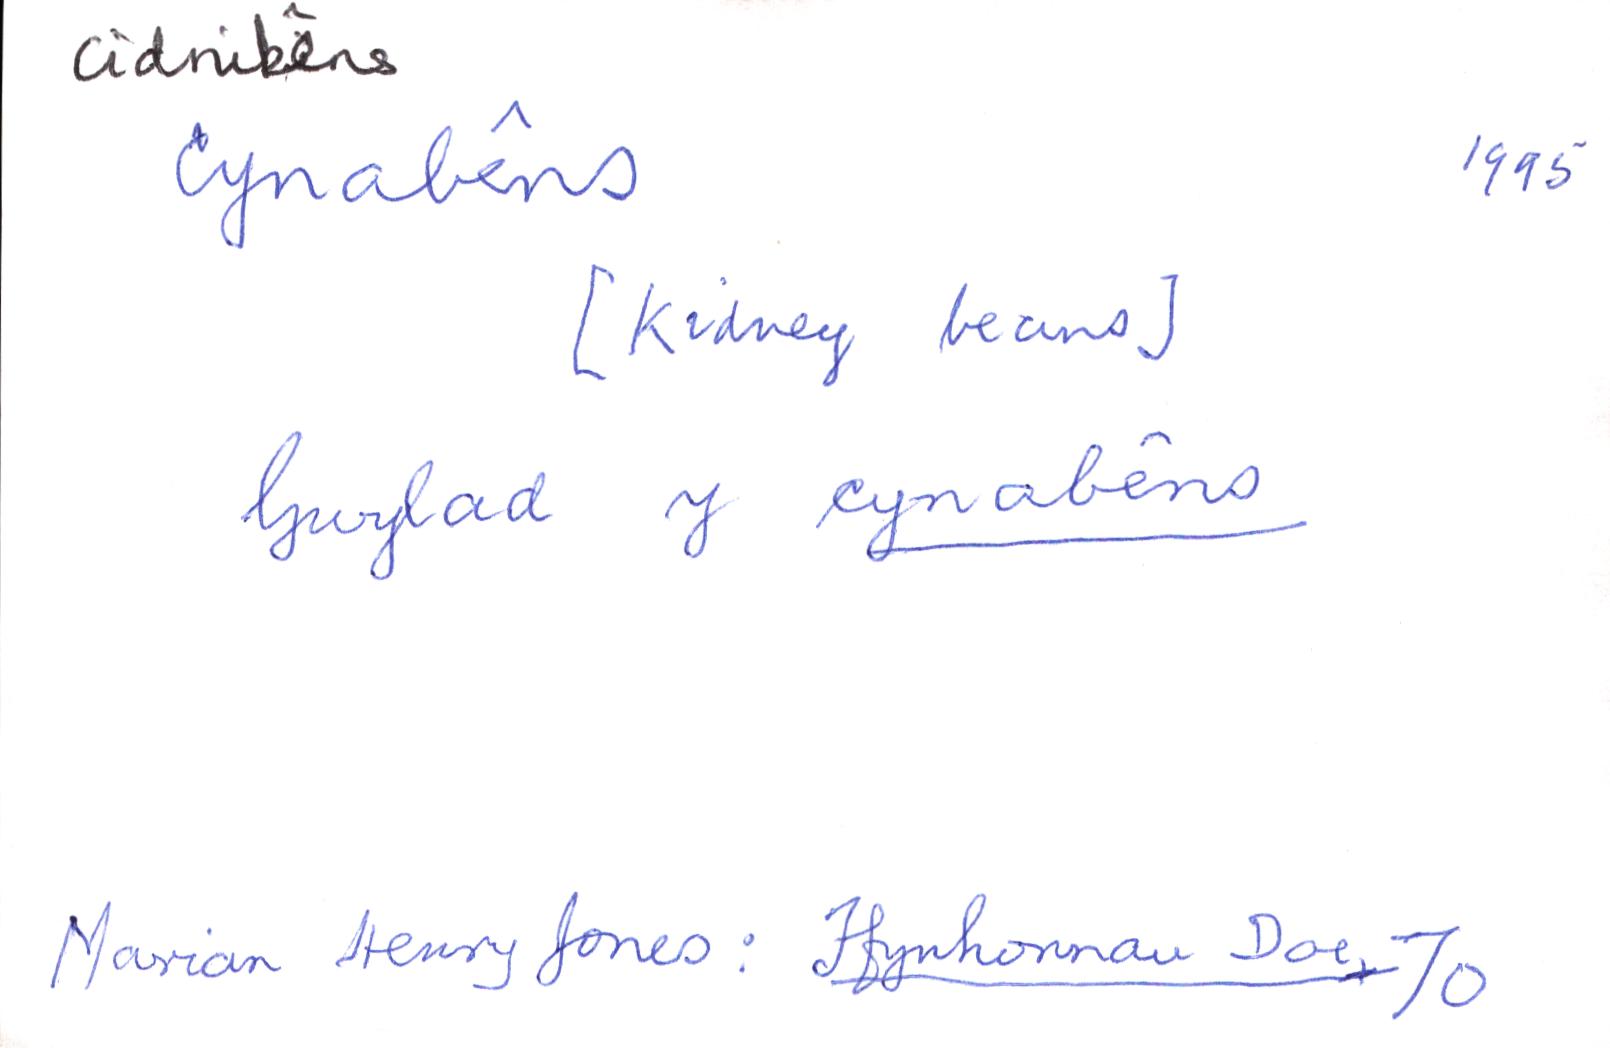 cidnibêns
Cynabêns 1995
[Kidney beans]
Gwylad y cynabêns
Marian Henry Jones: Ffynhonnau Doe, 70